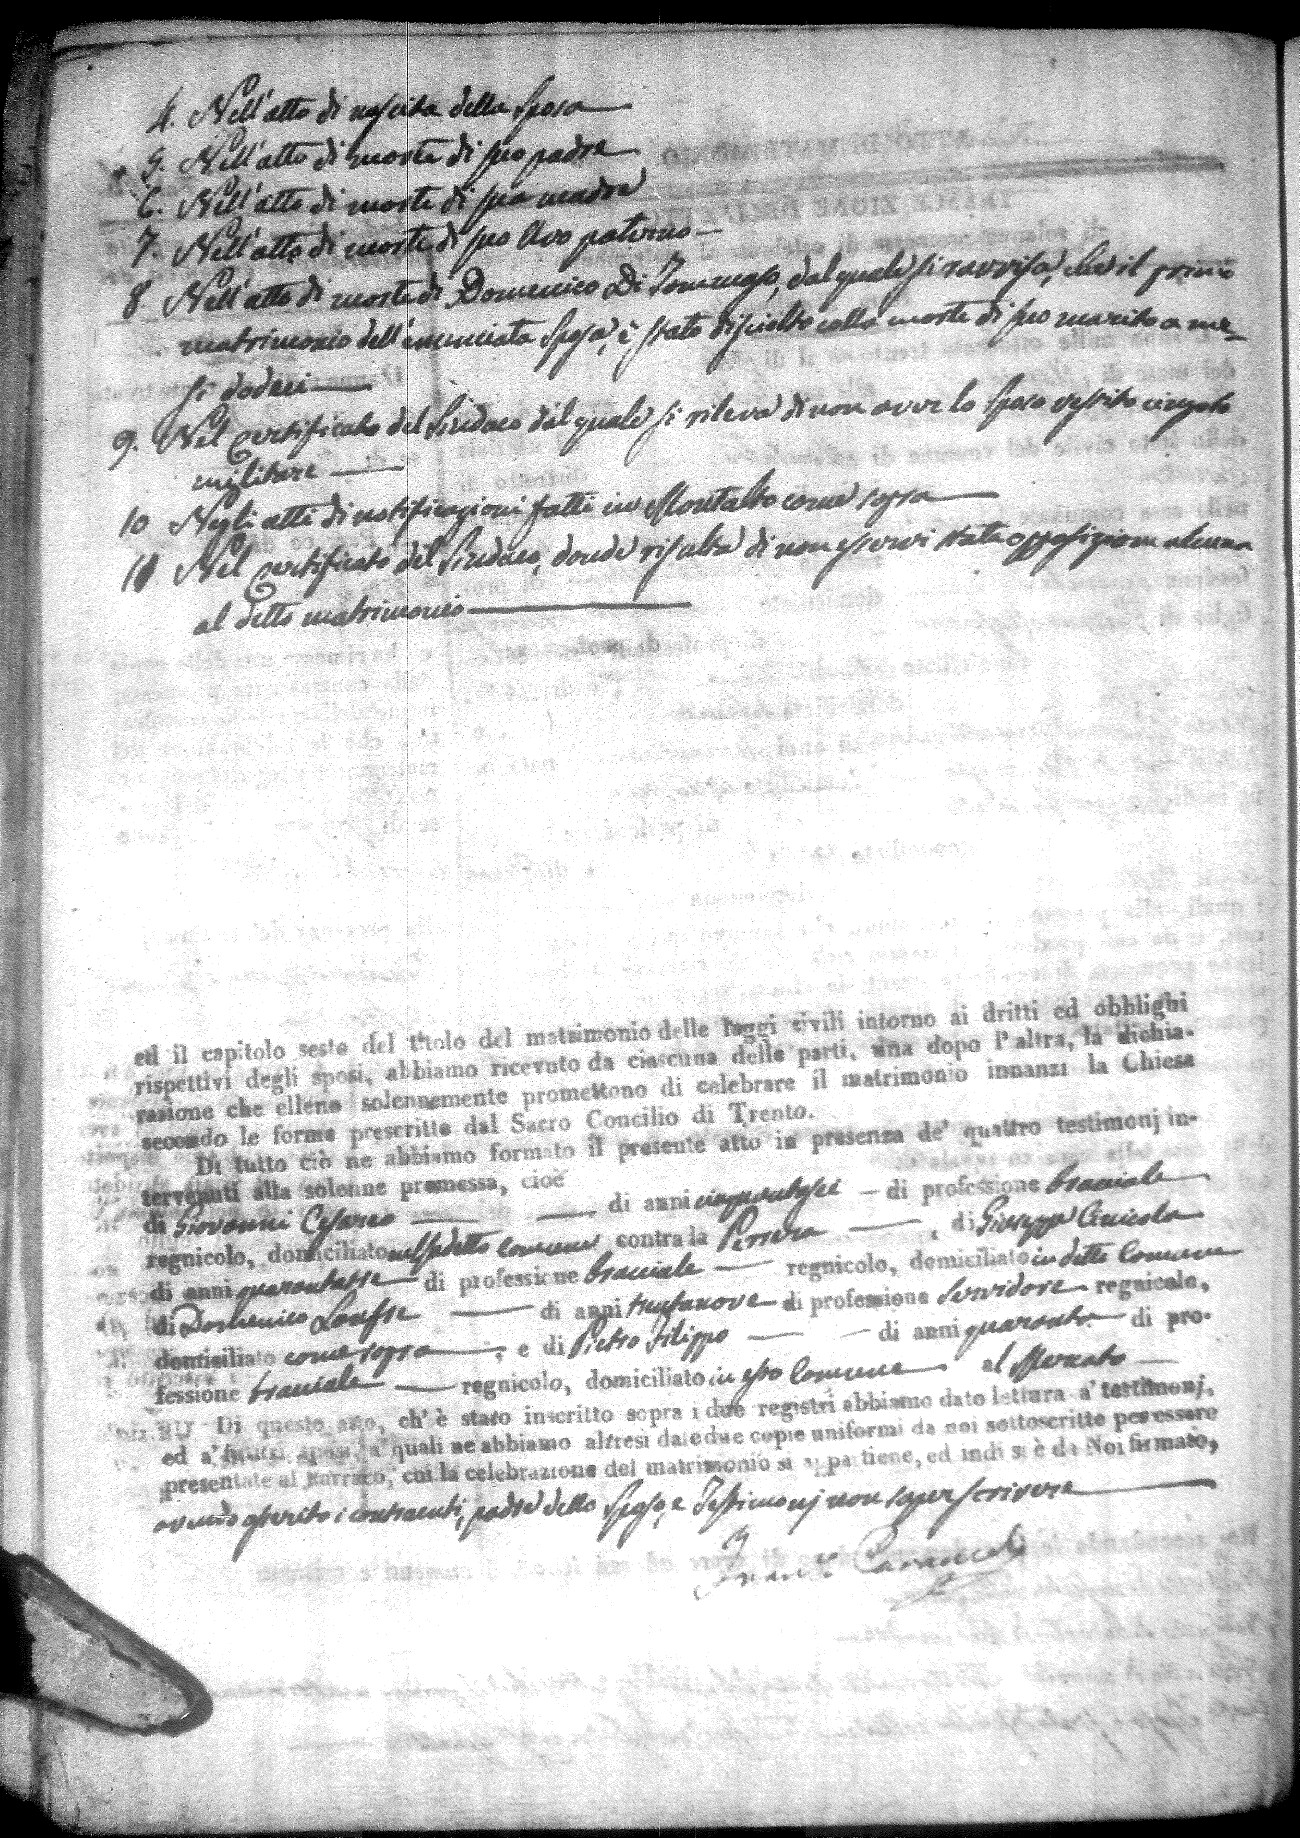 4. Nell'atto di nascita della Sposa
5. Nell'atto di morte di suo padre
6. Nell'atto di morte di sua madre
7. Nell'atto di morte di suo Avo paterno
8 Nell'atto di morte di Domenico Di Tommaso, dal quale si ravvisa, che il primo
matrimonio dell'enunciata Sposa, è stato disciolto colla morte di suo marito a me-
si dodeci
9. Nel Certificato del Sindaco dal quale si rileva di non aver lo Sposo vestito cingolo
militare
10 Negli atti di notificazioni fatti in Montalto come sopra
11 Nel Certificato del Sindaco, donde risulta di non esservi stata opposizione alcuna
al detto matrimonio
ed il capitolo sesto del titolo del matrimonio delle leggi civili intorno ai dritti ed obblighi
rispettivi degli sposi, abbiamo ricevuto da ciascuna delle parti, una dopo l'altra, la dichia-
razione che elleno solennemente promettono di celebrare il matrimonio innanzi la Chiesa
secondo le forme prescritte dal Sacro Concilio di Trento.
Di tutto ciò ne abbiamo formato il presente atto in presenza de' quattro testimonj in-
tervenuti alla solenne promessa, cioè
di Giovanni Cesareo di anni cinquantasei di professione bracciale
regnicolo, domiciliato nel sudetto Comune contra la , di Giuseppe
di anni quarantatre di professione bracciale regnicolo, domiciliato in detto Comune
di Domenico di anni trentanove di professione Servidore regnicolo,
domiciliato come sopra , e di Pietro Filippo di anni quaranta di pro-
fessione bracciale regnicolo, domiciliato in esso Comune al Mercato
Di questo atto, ch'è stato inscritto sopra i due registri abbiamo dato lettura a' testimonj,
ed a' futuri sposi, a' quali ne abbiamo altresi date due copie uniformi da noi sottoscritte per essere
presentate al parroco, cui la celebrazione del matrimonio si appartiene, ed indi si è da Noi firmato,
avendo asserito i contraenti, padre dello Sposo, e Testimonj non saper scrivere